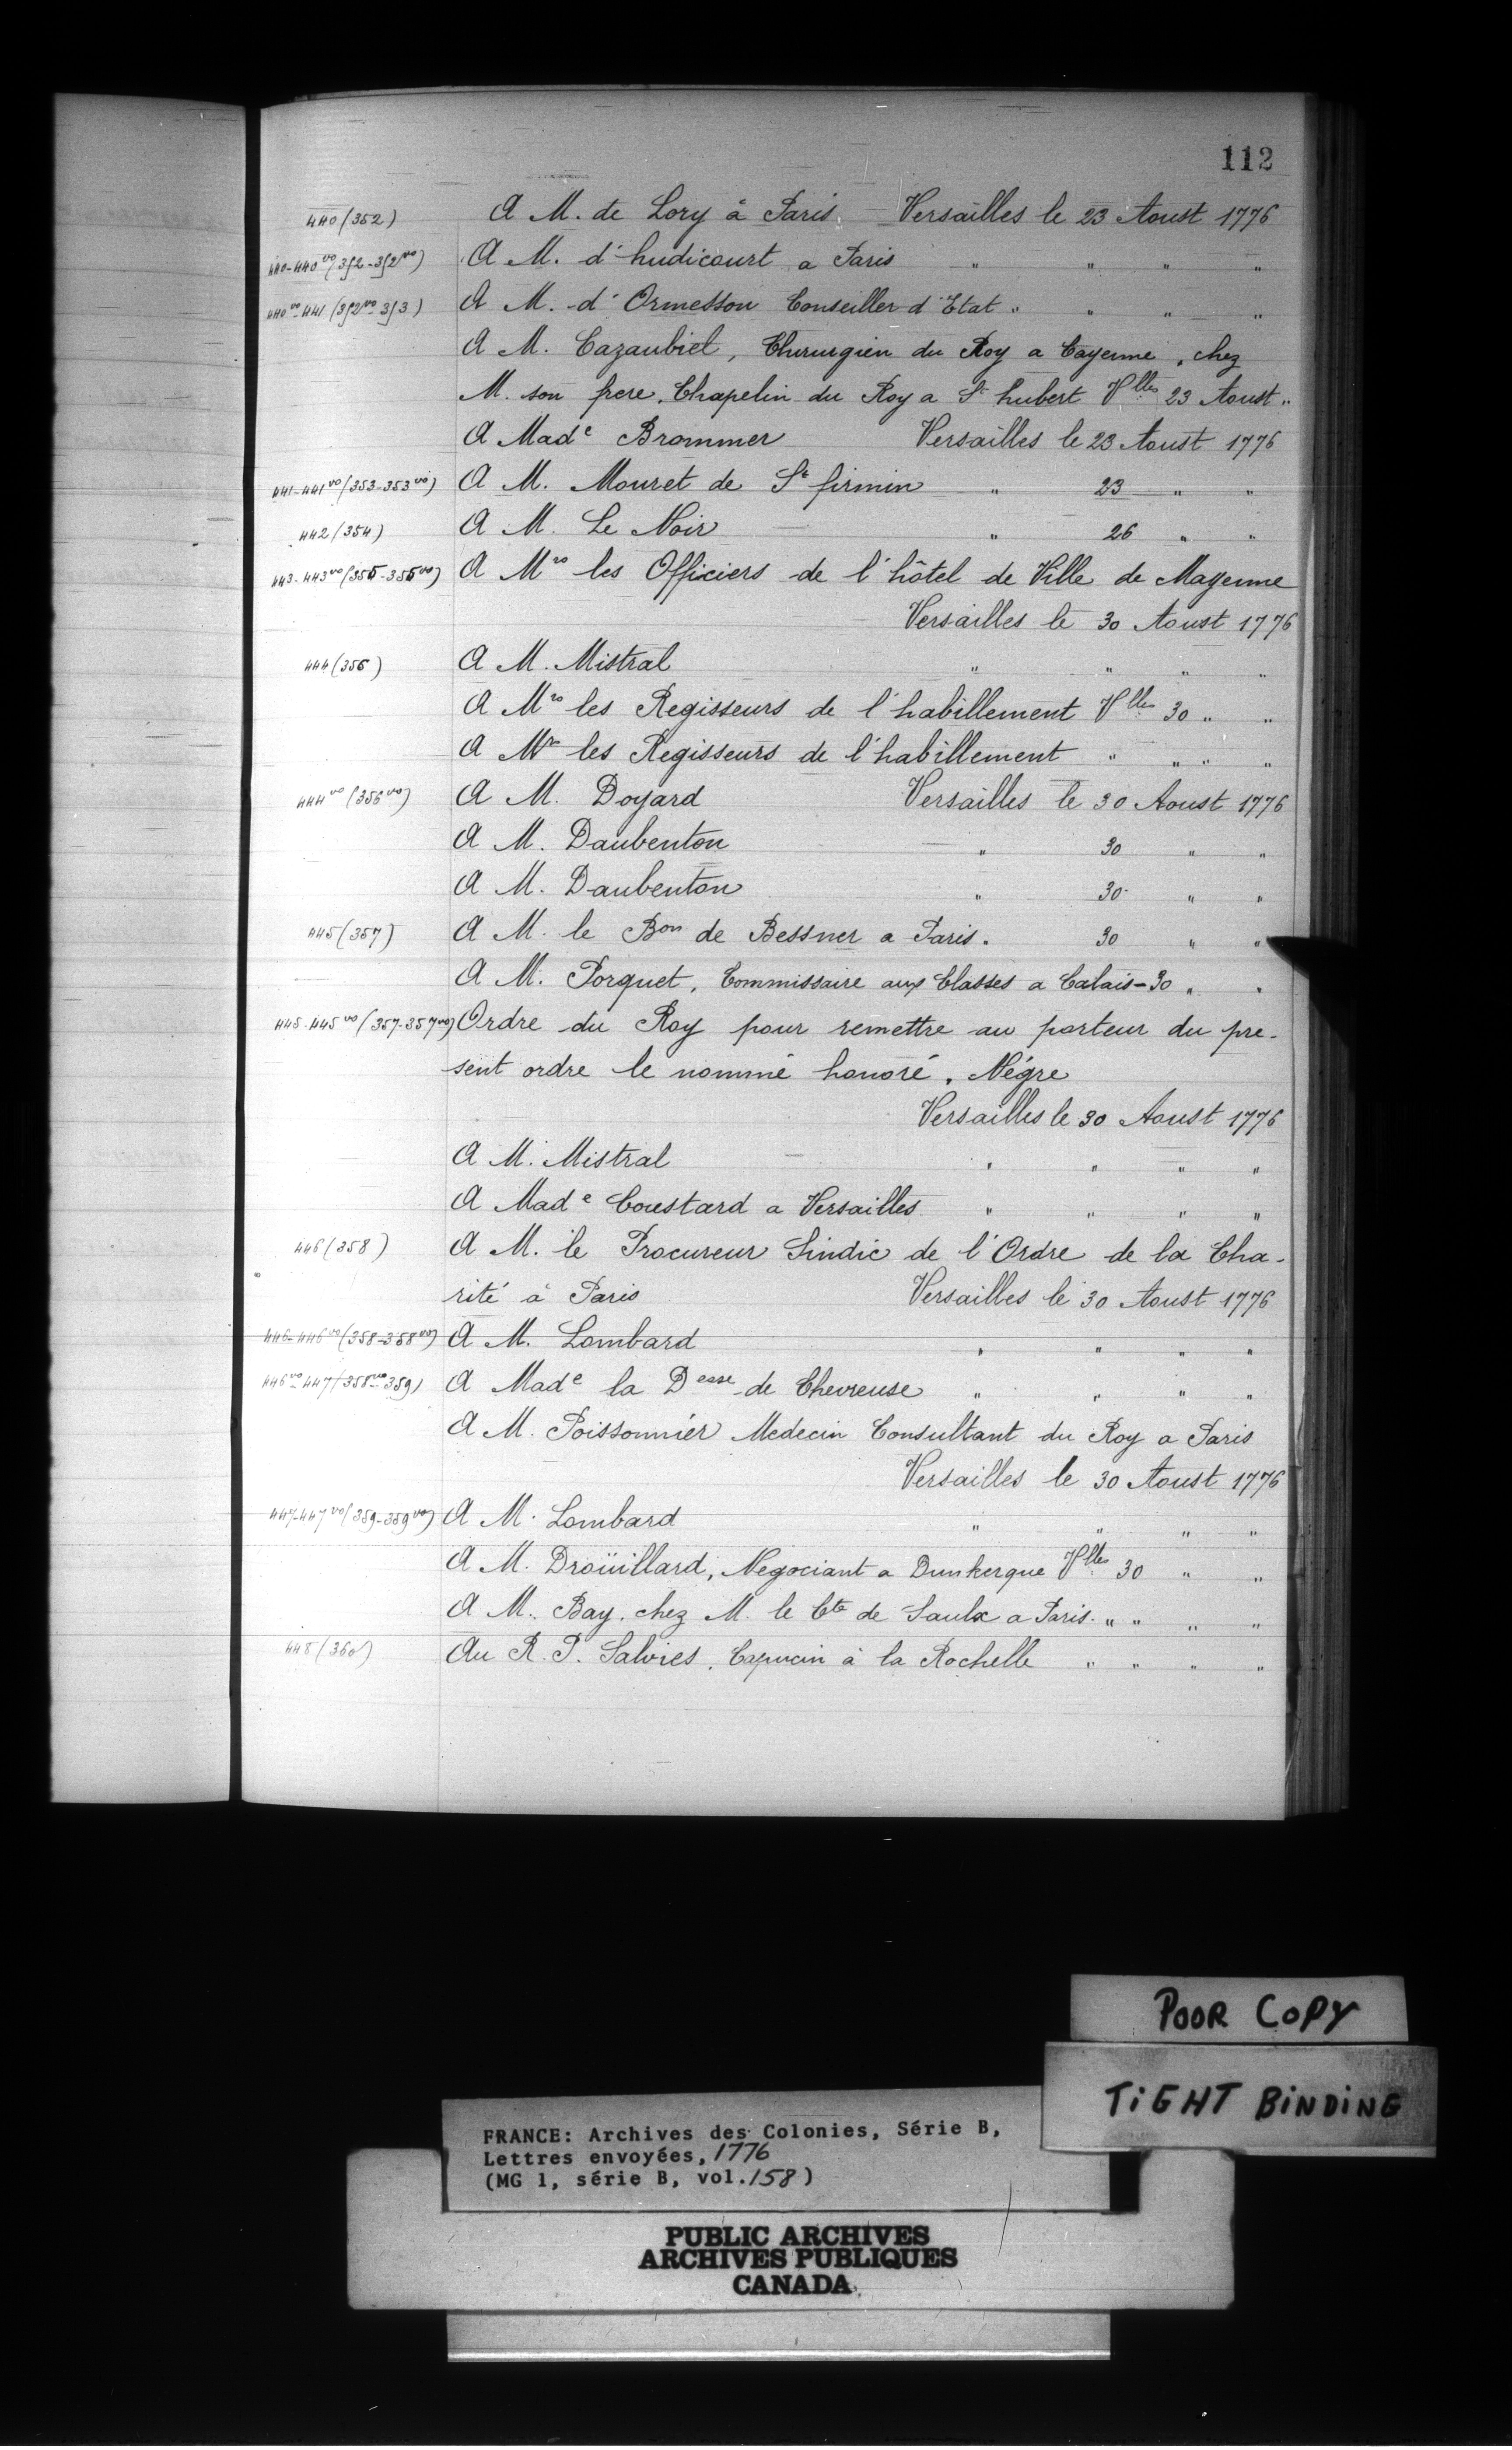 112
440 (352) A M. de Lory à Paris. Versailles le 23 Aoust 1776
440-440 vo (352-352 vo) A M. d'hudicourt a Paris " " " "
440 vo-441 (352 vo-353) A M. d'Ormesson Conseiller d'Etat " " " "
A M. Cazaubiel, Chirurgien du Roy a Cayenne, chez
M. son frere, Chapelin du Roy a St hubert Vlles 23 Aoust "
A Made Brommer Versailles le 23 Aoust 1776
441-441 vo (353-353 vo) A M. Mouret de St firmin " 23 " "
442 (354) A M. Le Noir " 26 " "
443-443 vo (355-355 vo) A Mrs les Officiers de l'hôtel de Ville de Mayenne
Versailles le 30 Aoust 1776
444 (356) A M. Mistral " " " "
A Mrs les Regisseurs de l'habillement Vlles 30 " "
A Mrs les Regisseurs de l'habillement " " " "
444 vo (356 vo) A M. Doyard Versailles le 30 Aoust 1776
A M. Daubenton " 30 " "
A M. Daubenton " 30 " "
445 (357) A M. le Bon de Bessner a Paris. 30 " "
A M. Porquet, Commissaire aux Classes a Calais-30 " "
445-445 vo (357-357 vo) Ordre du Roy pour remettre au porteur du pre-
sent ordre le nommé honoré, Négre
Versailles le 30 Aoust 1776
A M. Mistral " " " "
A Made Coustard a Versailles " " " "
446 (358) A M. le Procureur Sindic de l'Ordre de la Cha-
rité à Paris Versailles le 30 Aoust 1776
446-446 vo (358-358 vo) A M. Lombard " " " "
446 vo-447 (358 vo-359) A Made la Desse de Chevreuse " " " "
A M. Poissonnier Medecin Consultant du Roy a Paris
Versailles le 30 Aoust 1776
447-447 vo (359-359 vo) A M. Lombard " " " "
A M. Droüillard, Negociant a Dunkerque Vlles 30 " "
A M. Bay, chez M. le Cte de Saulx a Paris. " " " "
448 (360) Au R. P. Salvies, Capucin à la Rochelle " " " "
POOR COPY
TIGHT BINDING
FRANCE: Archives des Colonies, Série B,
Lettres envoyées, 1776
(MG 1, série B, vol. 158)
PUBLIC ARCHIVES
ARCHIVES PUBLIQUES
CANADA